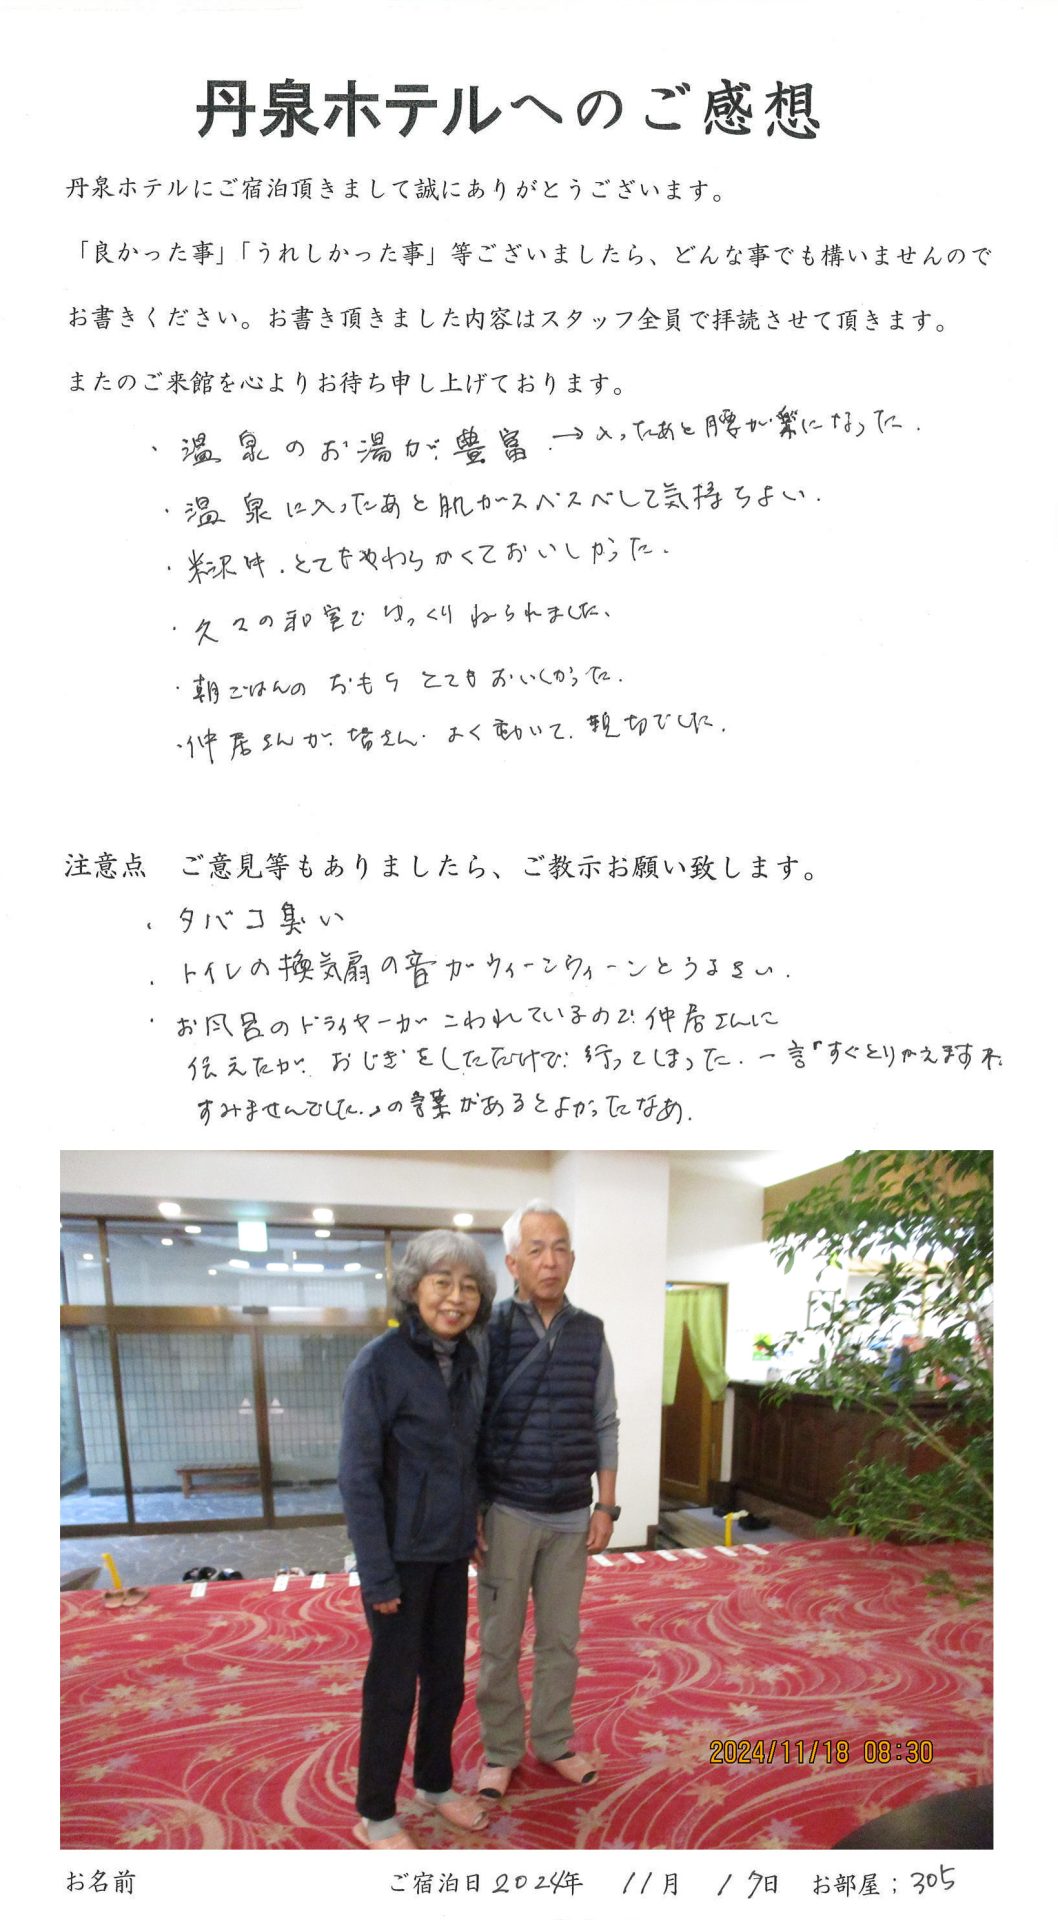 丹泉ホテルへのご感想
丹泉ホテルにご宿泊頂きまして誠にありがとうございます。
「良かった事」「うれしかった事」等ございましたら、どんな事でも構いませんので
お書きください。お書き頂きました内容はスタッフ全員で拝読させて頂きます。
またのご来館を心よりお待ち申し上げております。
・温泉のお湯が豊富.→入ったあと腰が楽になった.
・温泉に入ったあと肌がスベスベして気持ちよい.
・米沢牛.とてもやわらかくておいしかった.
・久々の和室でゆっくりねられました.
・朝ごはんのおもちとてもおいしかった.
・仲居さんが皆さん.よく動いて.親切でした.
注意点　ご意見等もありましたら、ご教示お願い致します。
・タバコ臭い
・トイレの換気扇の音がウィーンウィーンとうるさい.
・お風呂のドライヤーがこわれているので仲居さんに
伝えたが.おじぎをしただけで行ってしまった.一言「すぐとりかえますネ.
すみませんでした.」の言葉があるとよかったなあ.
2024/11/18 08:30
お名前　ご宿泊日2024年　11月　17日　お部屋；305